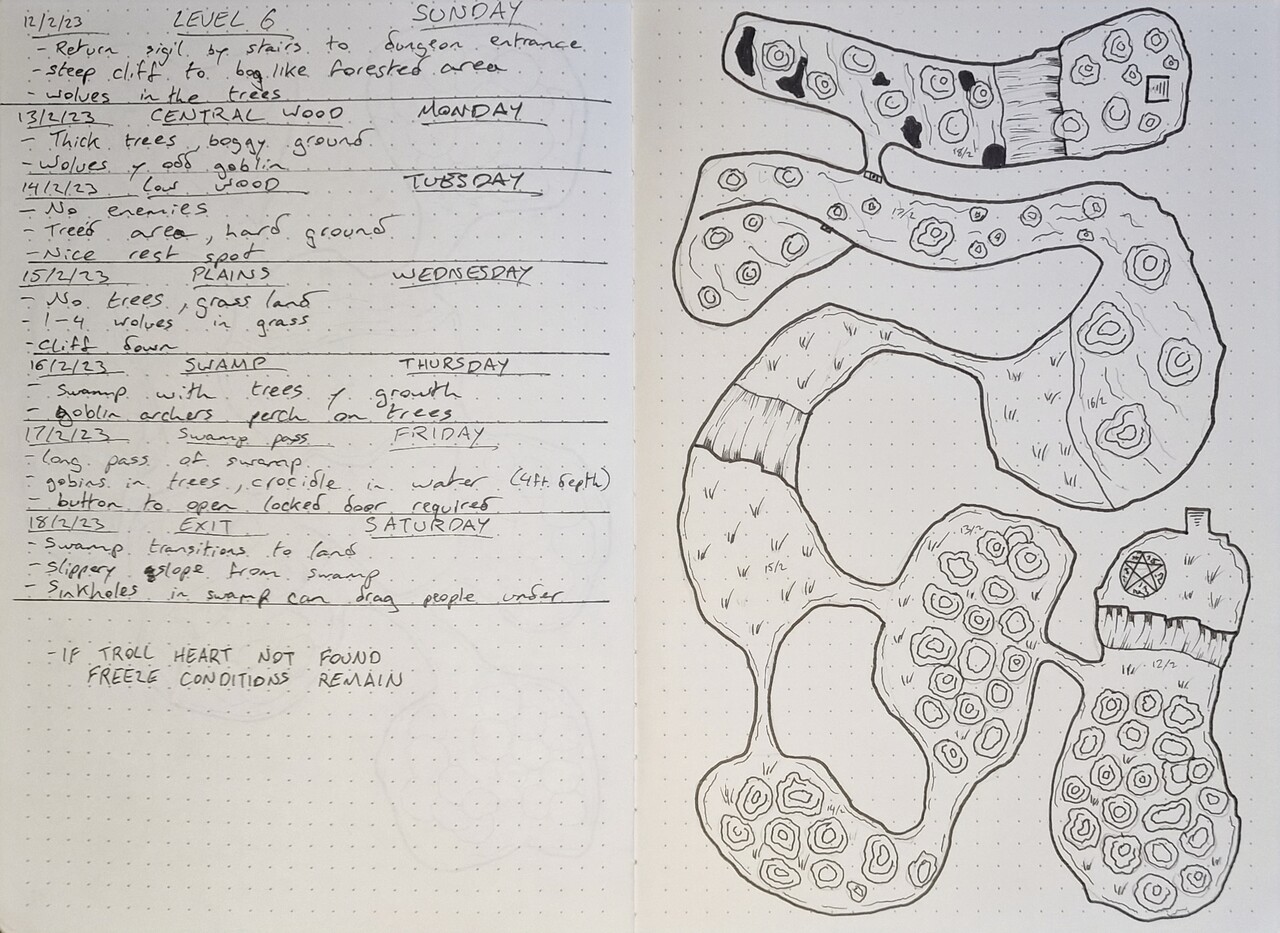 12/2/23 LEVEL 6 SUNDAY
- Return sigil by stairs to dungeon entrance
- steep cliff to bog like forested area
- wolves in the trees
13/2/23 CENTRAL WOOD MONDAY
- Thick trees, boggy ground
- Wolves y odd goblin
14/2/23 Low WOOD TUESDAY
- No enemies
- Treed area, hard ground
- Nice rest spot
15/2/23 PLAINS WEDNESDAY
- No trees, grass land
- 1-4 wolves in grass
- Cliff down
16/2/23 SWAMP THURSDAY
- Swamp with trees y growth
- goblin archers perch on trees
17/2/23 Swamp pass FRIDAY
- long pass of swamp
- gobins in trees, crocidle in water (4ft depth)
- button to open locked door required
18/2/23 EXIT SATURDAY
- Swamp transitions to land
- Slippery slope from swamp
- Sinkholes in swamp can drag people under
- IF TROLL HEART NOT FOUND
FREEZE CONDITIONS REMAIN
18/2
17/2
16/2
15/2
13/2
12/2
14/2